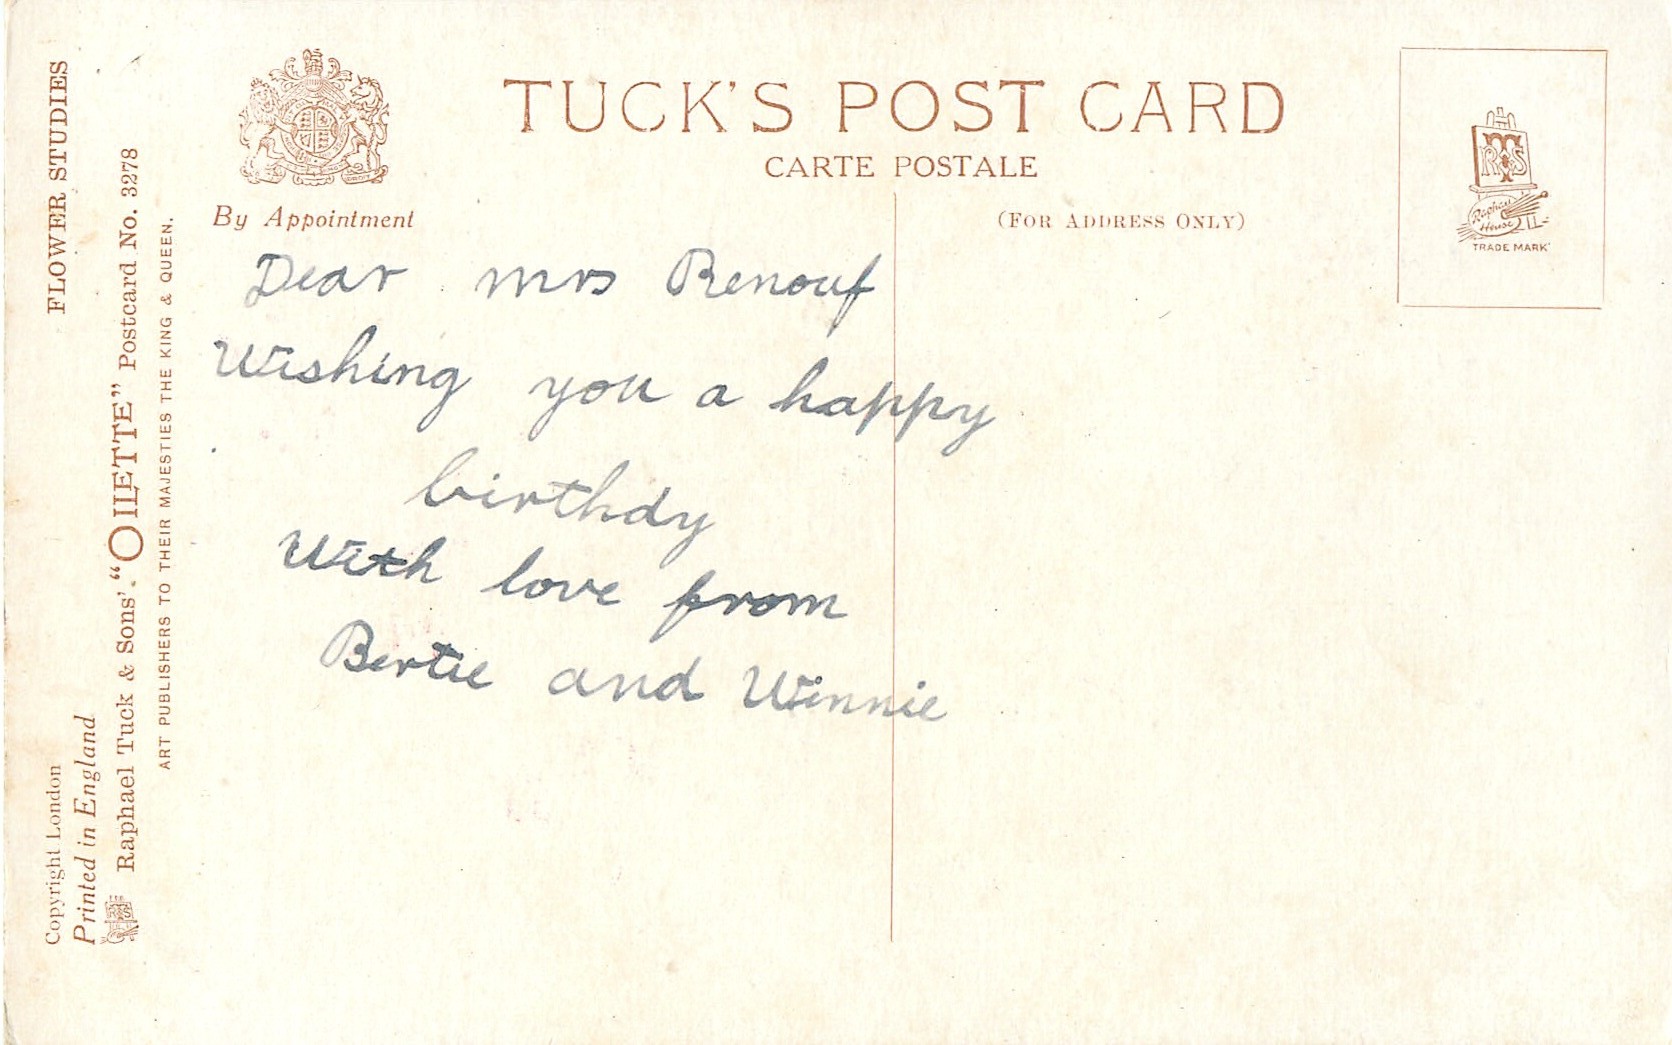 TUCK'S POST CARD
CARTE POSTALE
By Appointment
(FOR ADDRESS ONLY)
RTS
Raphael House
TRADE MARK
Dear mrs Renouf
Wishing you a happy
birthdy
With love from
Bertie and Winnie
FLOWER STUDIES
Copyright London
Printed in England
Raphael Tuck & Sons' "OILETTE" Postcard No. 3278
ART PUBLISHERS TO THEIR MAJESTIES THE KING & QUEEN.